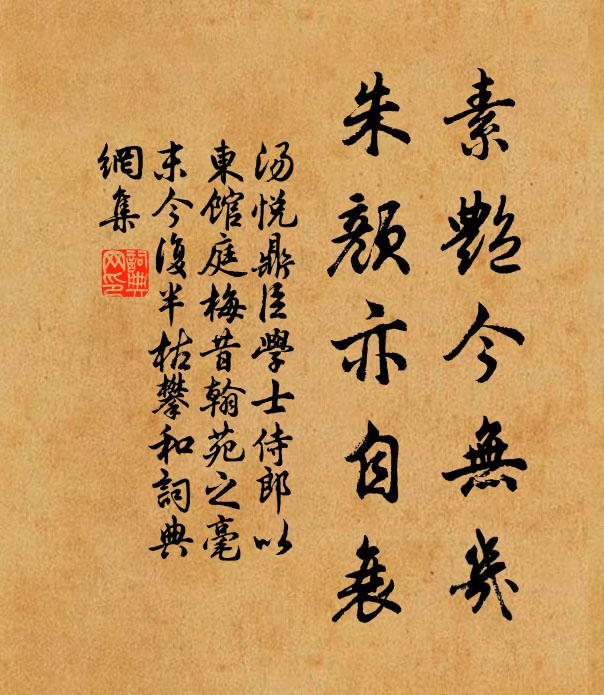 素艷今無幾
朱顏亦自衰
湯悅鼎臣學士侍郎以
東館庭梅昔翰苑之毫
末今復半枯攀和詞典
網集
詞典
网印